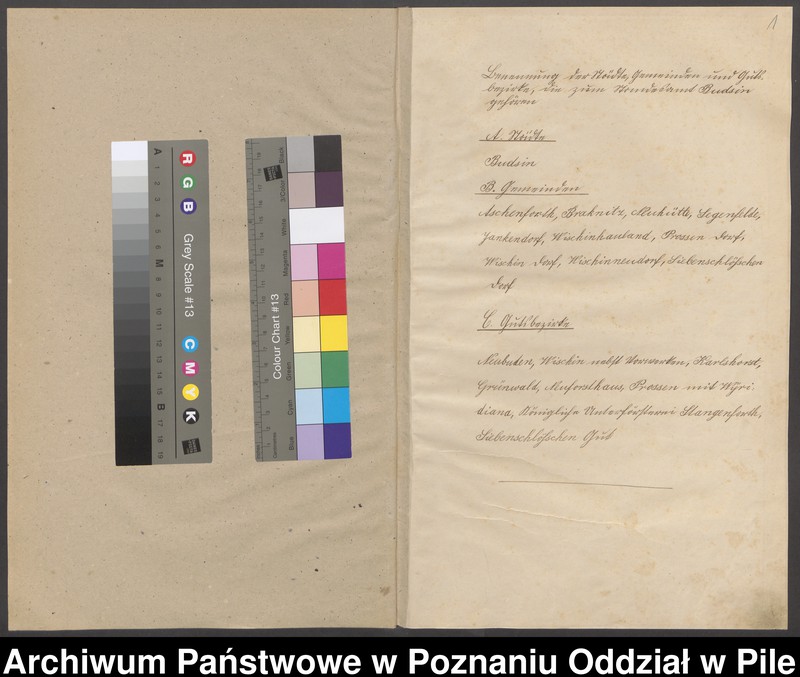 A 1 2 3 4 5 6 M 8 9 10 11 12 13 14 15 B 17 18 19
R G B
Grey Scale #13
C M Y K
Colour Chart #13
Blue Cyan Green Yellow Red Magenta White 3/Color Black
1
Benennung der Städte, Gemeinden und Guts-
bezirke, die zum Standesamt Budsin
gehören
A. Städte
Budsin
B. Gemeinden
Aschenforth, Braknitz, Neuhütte, Segenfelde,
Jankendorf, Wischinhauland, Prossen Dorf,
Wischin Dorf, Wischinneudorf, Siebenschlößchen
Dorf
C. Gutsbezirke
Neubuden, Wischin nebst Vorwerken, Karlshorst,
Grünwald, Prossen mit
Königliche Unterförsterei Stangenforth,
Siebenschlößchen Gut
Archiwum Państwowe w Poznaniu Oddział w Pile